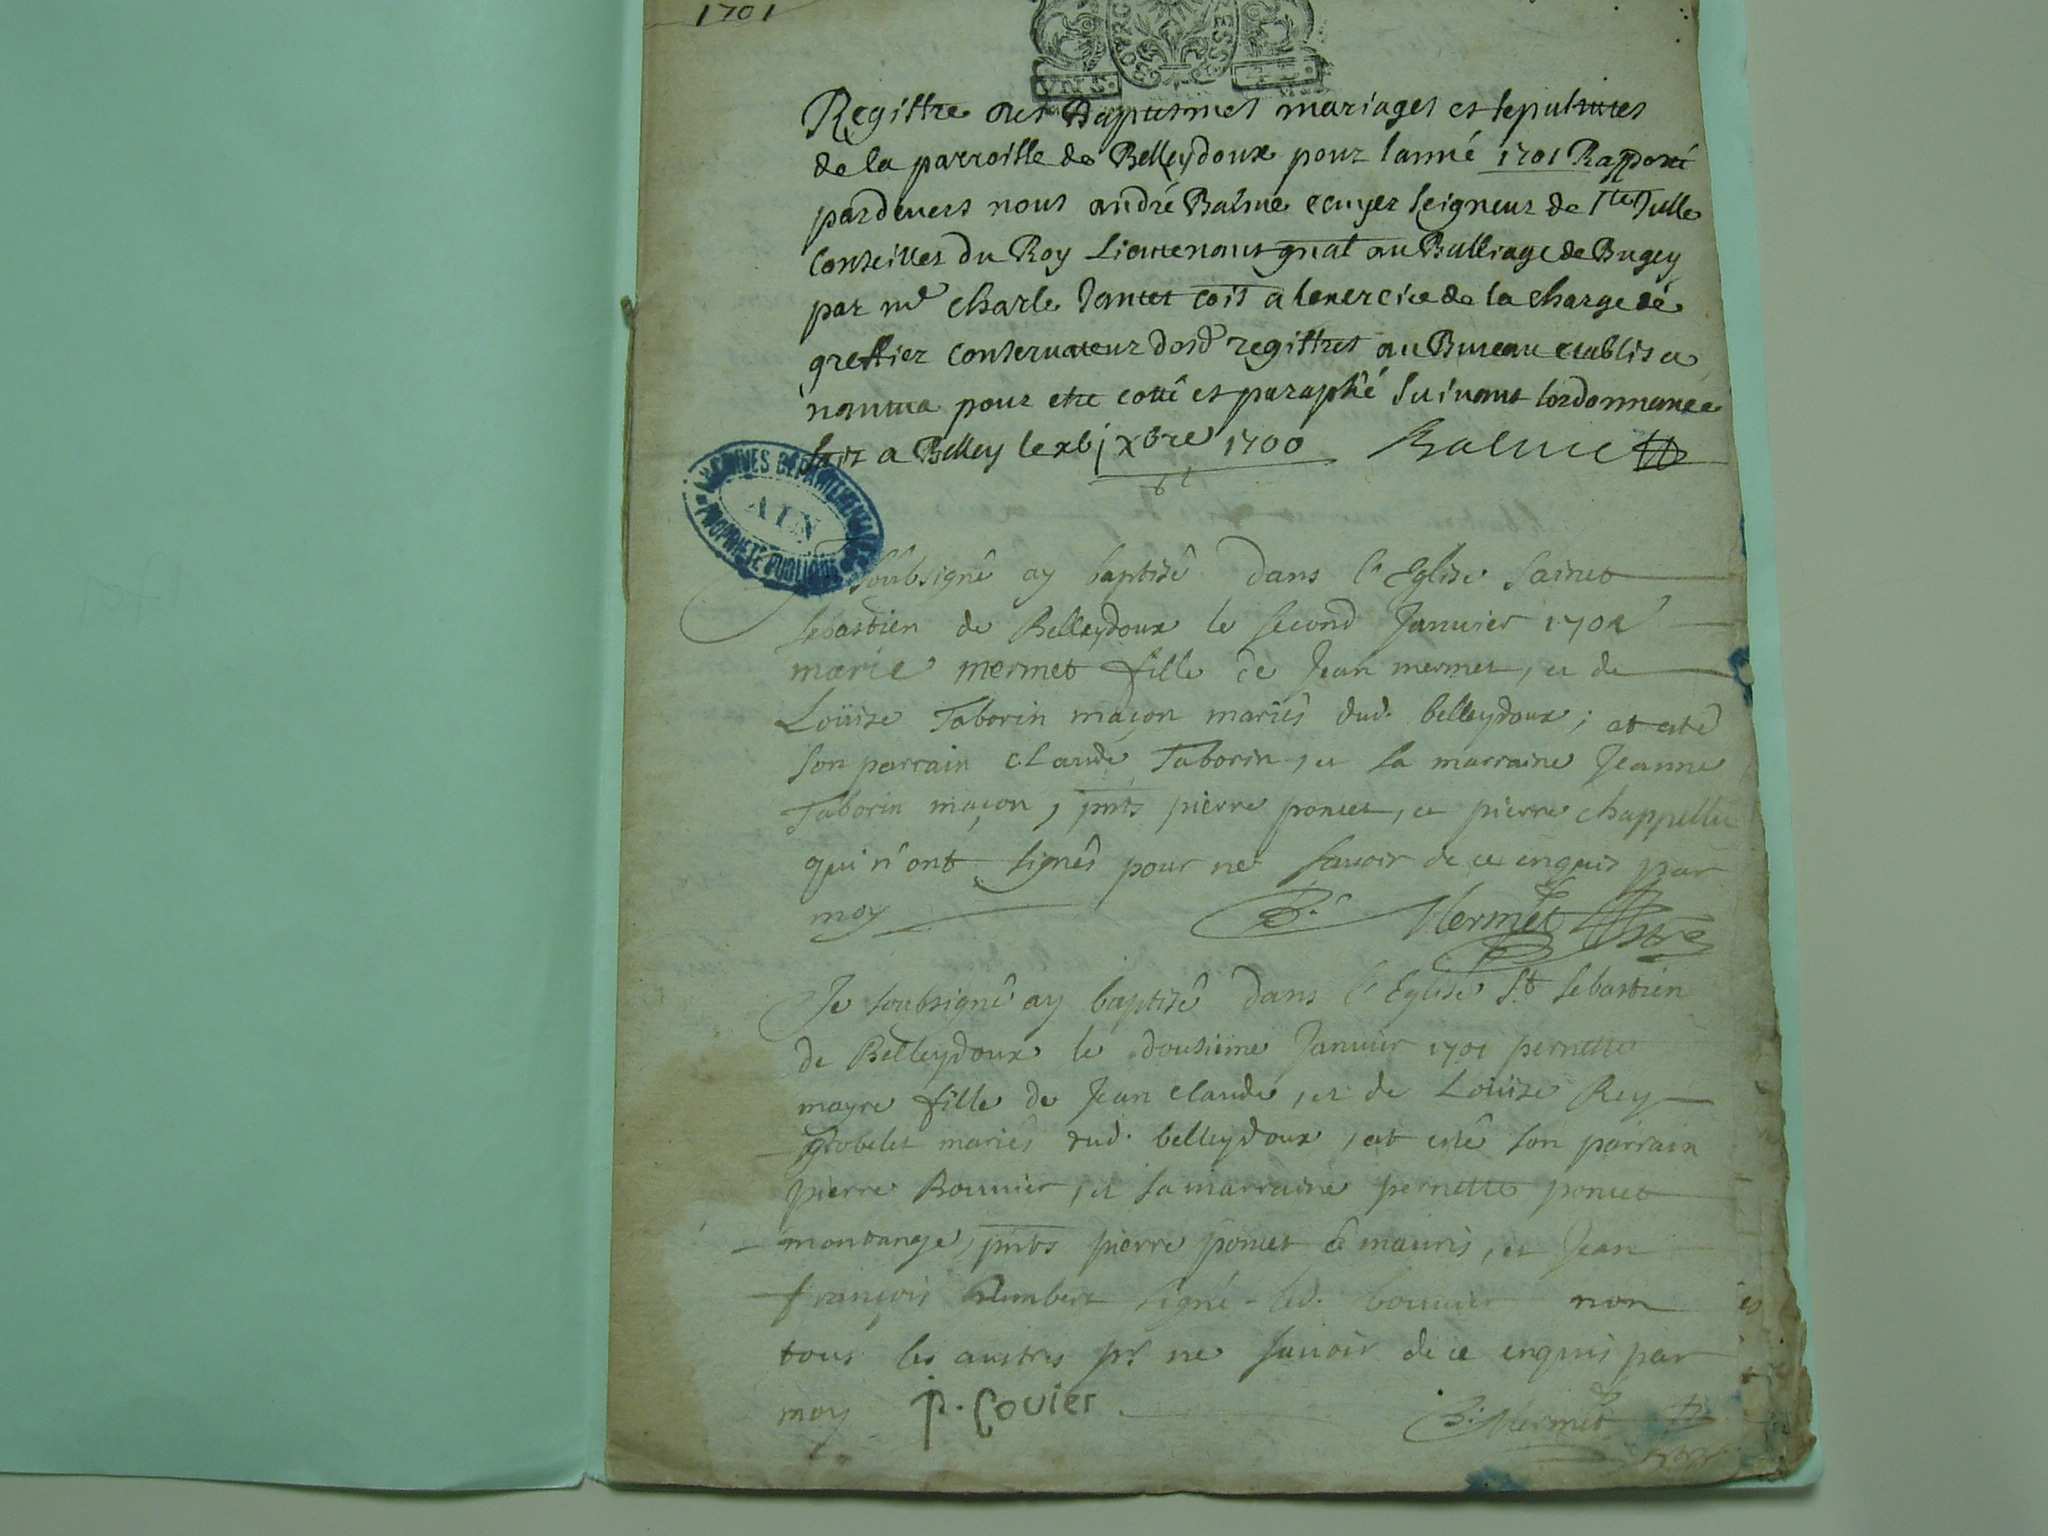 1701
BOURG BRESSE
Registre des Baptesmes mariages et sepultures
de la parroisse de Belleydoux pour lanné 1701 Rapporté
pardevers nous andré Balme ecuyer seigneur de Ste Julle
Conseiller du Roy Lieutenant gnal au Balliage de Bugey
par me Charle Jantet cois a lexercice de la charge de
greffier conservateur desd registres au Bureau establis a
nantua pour etre cotté et paraphé suivant lordonnance
fait a Belley le xbj xbre 1700 Balme
ARCHIVES DÉPARTEMENTALES
AIN
PROPRIÉTÉ PUBLIQUE
soubsigné ay baptisé dans l'Eglise sainct
sebastien de Belleydoux le second Janvier 1701
marie mermet fille de Jean mermet, et de
Loüise Taborin maçon mariés dud. belleydoux; at esté
son parrain claude Taborin, et sa marraine Jeanne
Taborin maçon, pnts pierre poncet, et pierre chappellu
qui n'ont signés pour ne scavoir de ce enquis par
moy B. Mermet ptre
Je soubsigné ay baptisé dans l'Eglise St sebastien
de Belleydoux le dousiême Janvier 1701 pernette
mayre fille de Jean claude, et de Loüise Rey
grobelet mariés dud. belleydoux, at esté son parrain
pierre Bouvier, et sa marraine pernette poncet
montange, pnts pierre poncet de mauris, et Jean
françois humbert signé led. bouvier non
tous les austres pr ne scavoir de ce enquis par
moy P. Bovier B. Mermet